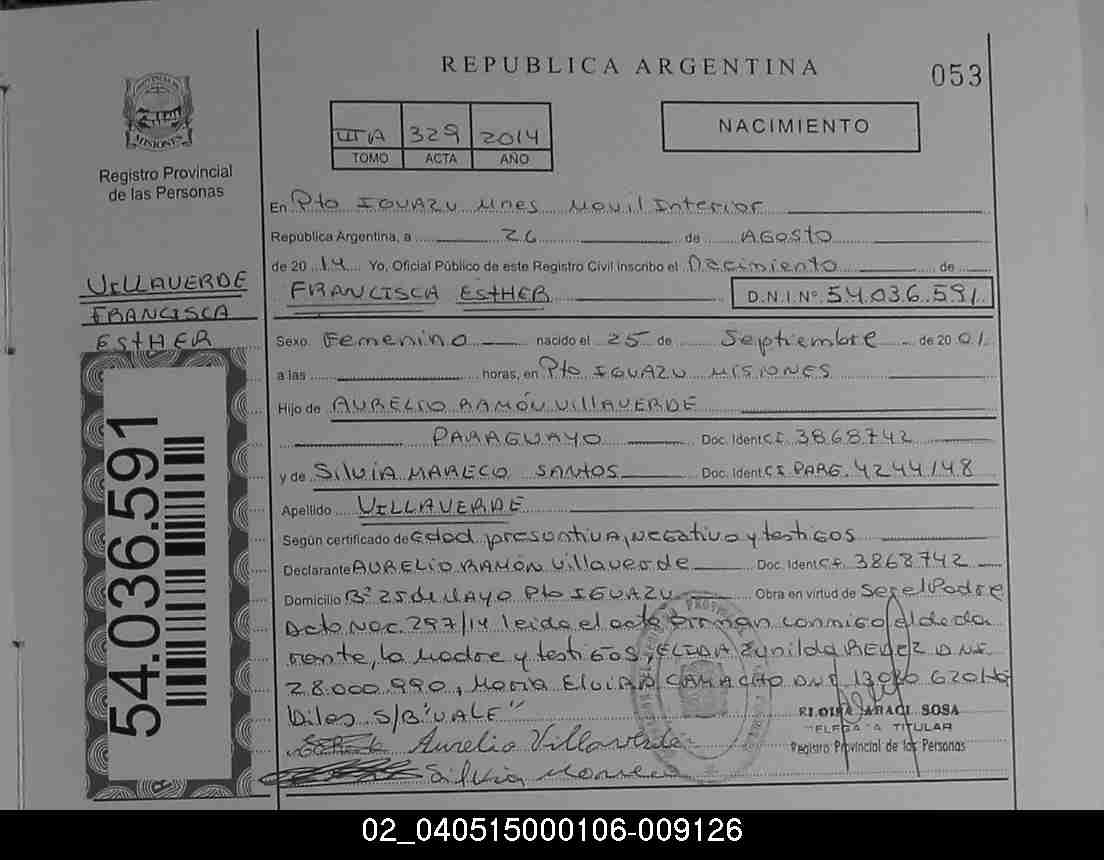 REPUBLICA ARGENTINA
053
PROVINCIA DE
MISIONES
Registro Provincial
de las Personas
III A 329 2014
TOMO ACTA AÑO
NACIMIENTO
En Pto IGUAZU Mnes Movil Interior
República Argentina, a 26 de AGOSTO
de 20 14 Yo, Oficial Público de este Registro Civil inscribo el Nacimiento de
FRANCISCA ESTHER D.N.I.Nº 54.036.591
VILLAVERDE
FRANCISCA
ESTHER
Sexo Femenino nacido el 25 de Septiembre de 20 01
a las horas, en Pto IGUAZU MISIONES
Hijo de AURELIO RAMÓN VILLAVERDE
PARAGUAYO Doc. Ident C.I. 3868742
y de SILVIA MARECO SANTOS Doc. Ident C.I. PARG. 4244148
Apellido VILLAVERDE
Según certificado de Edad presuntiva, negativa y testigos
Declarante AURELIO RAMÓN Villaverde Doc. Ident C.I. 3868742
Domicilio Bº 25 de MAYO Pto IGUAZU Obra en virtud de Ser el Padre
Acto Nac. 297/14 leida el acta firman conmigo el decla
rante, la Madre y testigos, ELIDA Zunilda D.N.I.
28.000.990, Maria Elvira CAMACHO DNI
S/B "VALE"
ELOISA ARACI SOSA
DELEGADA TITULAR
Registro Provincial de las Personas
Aurelio Villaverde
Silvia Mareco
54.036.591
02_040515000106-009126